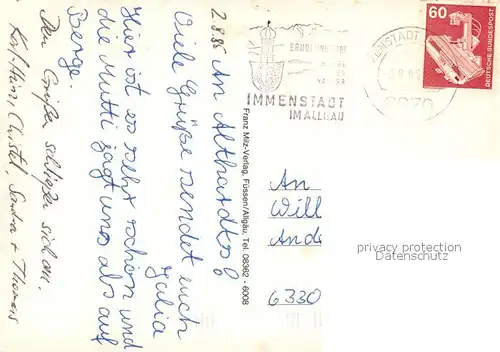 2.8.85 An Althardts!
Viele Grüße sendet euch
Julia
Hier ist es sehr schön und
die Mutti jagt uns ab auf
Berge.
Den Grüßen schließen sich an.
Karl-Heinz, Christel, Sandra + Thomas
Franz Milz-Verlag, Füssen/Allgäu, Tel. 08362 - 6008
IMMENSTADT
IM ALLGÄU
60
DEUTSCHE BUNDESPOST
An
Will
And
6330
privacy protection
Datenschutz